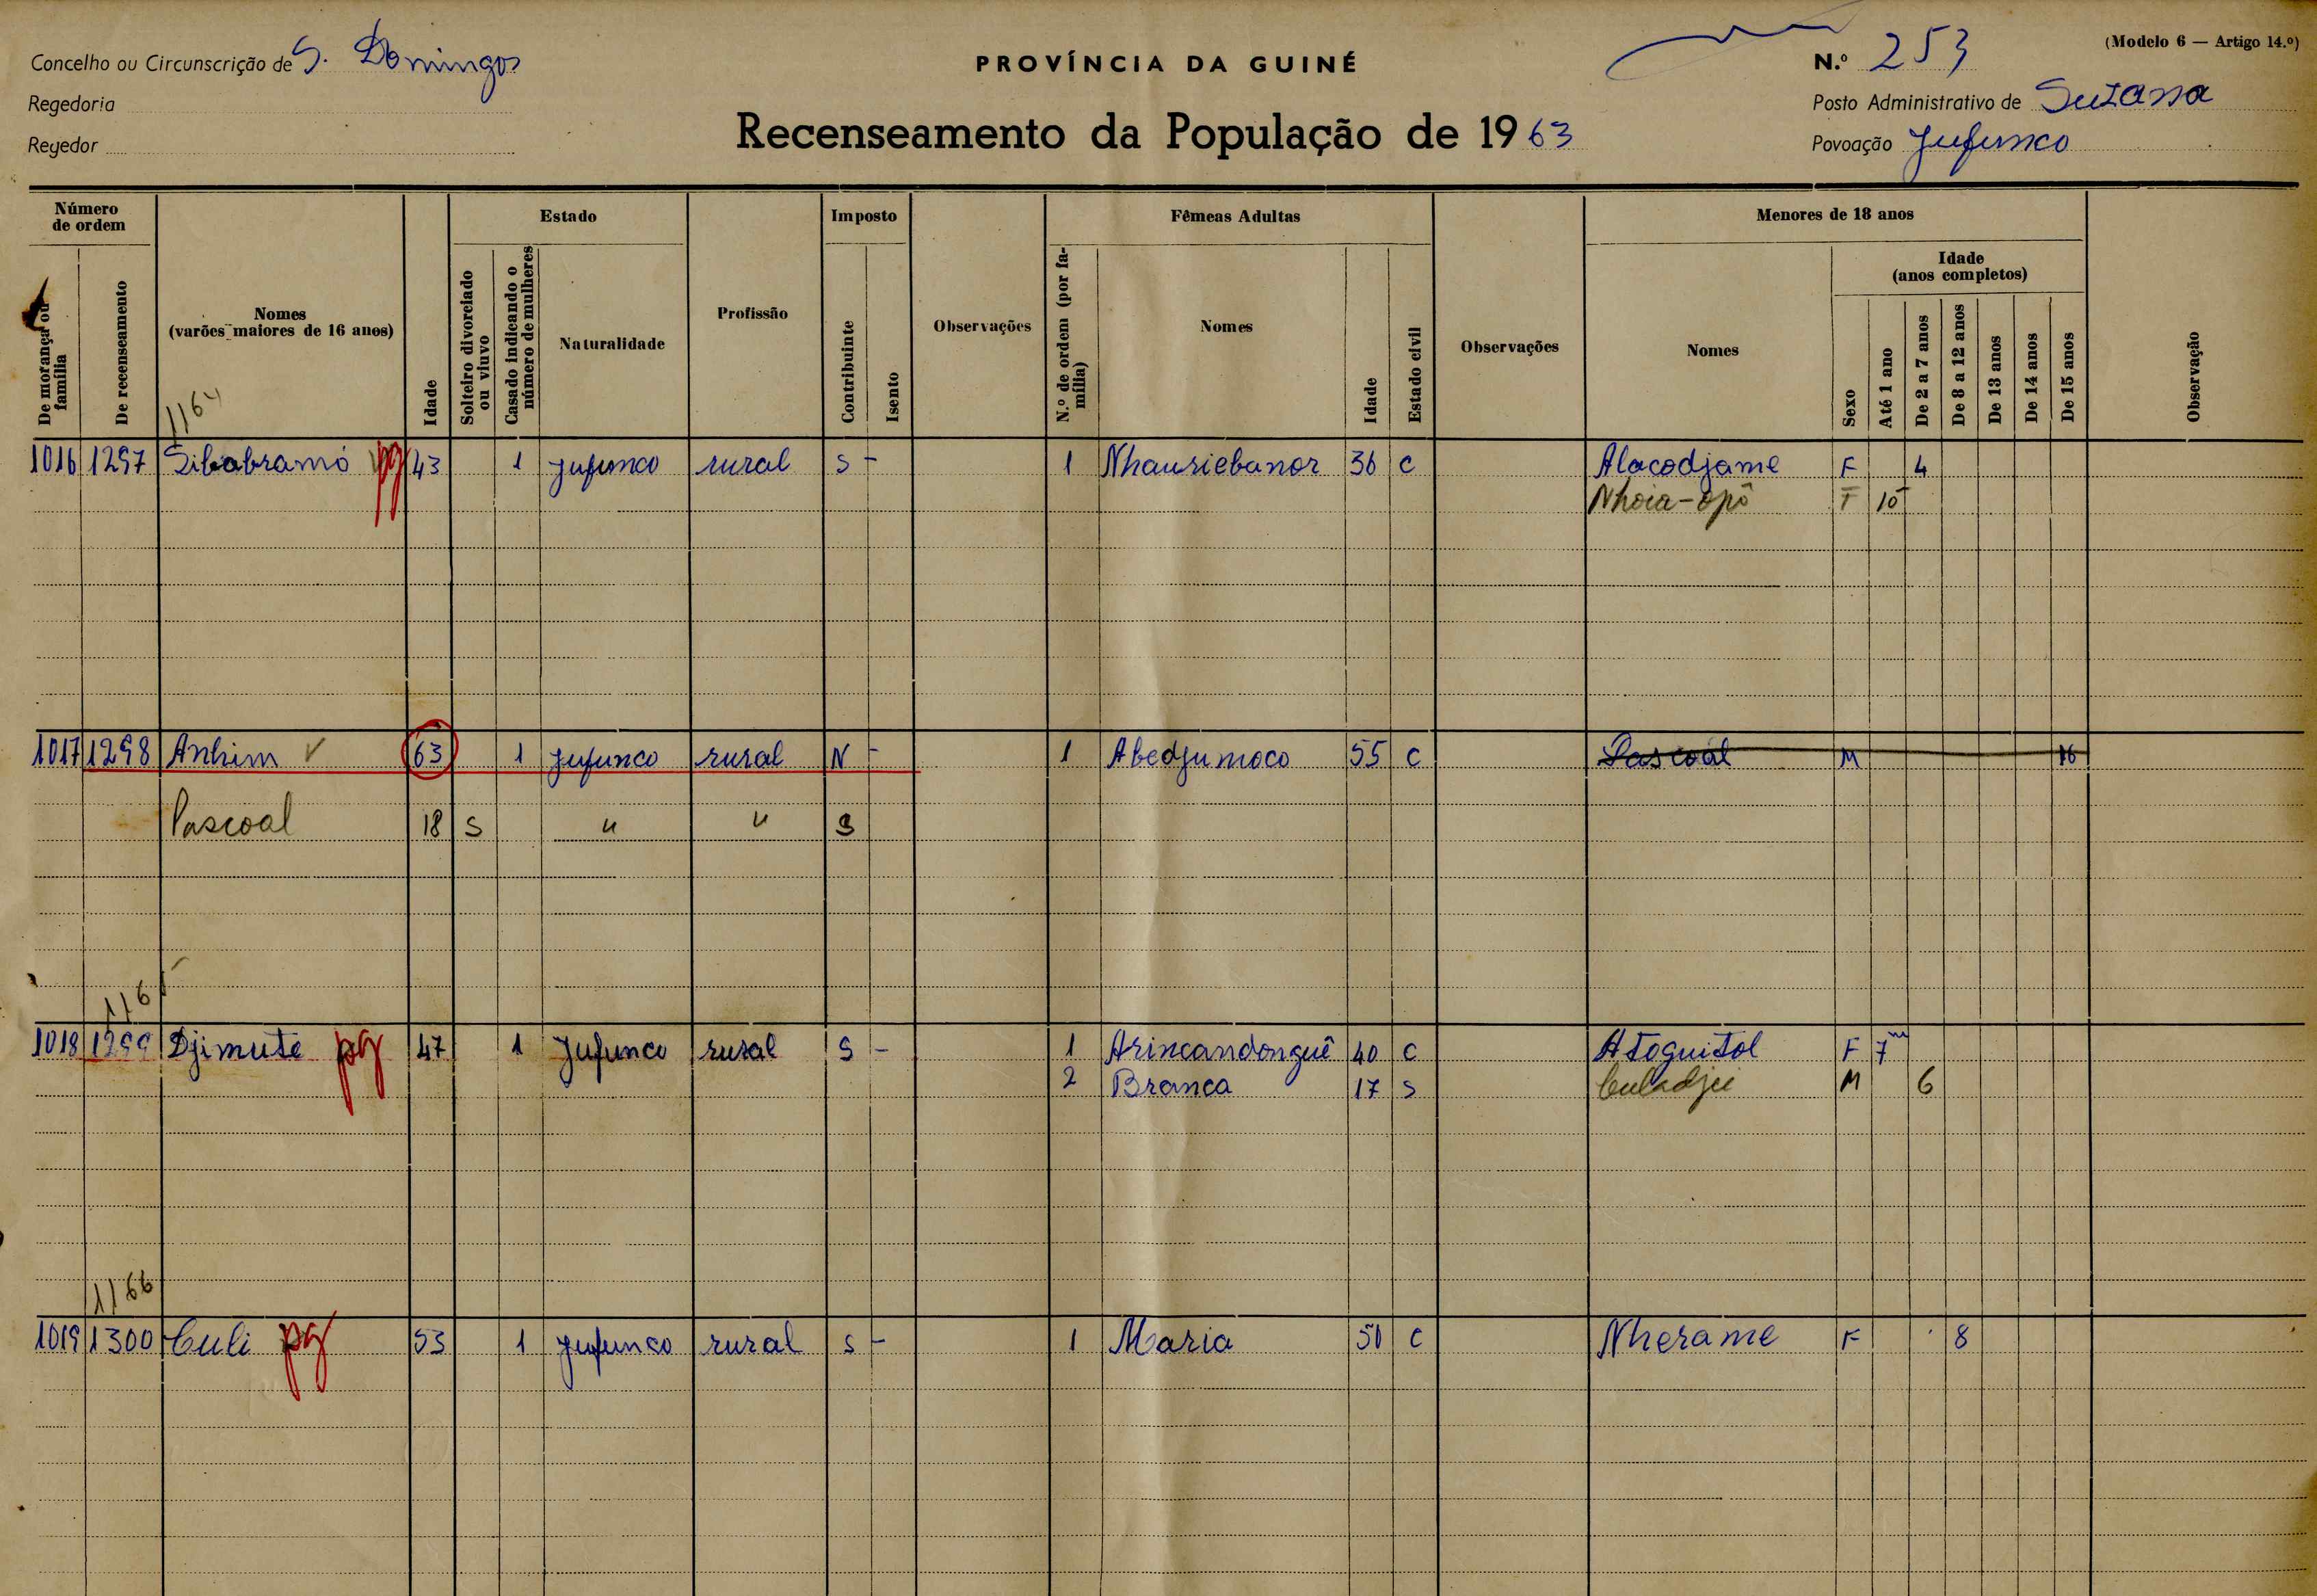 Concelho ou Circunscrição de S. Domingos
Regedoria
Regedor
PROVÍNCIA DA GUINÉ
Recenseamento da População de 1963
(Modelo 6 — Artigo 14.º)
N.º 253
Posto Administrativo de Suzana
Povoação Jufunco
Número de ordem
De morança ou família
De recenseamento
Nomes (varões maiores de 16 anos)
Idade
Estado
Solteiro divorciado ou viuvo
Casado indicando o número de mulheres
Naturalidade
Profissão
Imposto
Contribuinte
Isento
Observações
Fêmeas Adultas
N.º de ordem (por família)
Nomes
Idade
Estado civil
Observações
Menores de 18 anos
Nomes
Sexo
Idade (anos completos)
Até 1 ano
De 2 a 7 anos
De 8 a 12 anos
De 13 anos
De 14 anos
De 15 anos
Observação
1164
1016 1297 Sibabramó pg 43 1 Jufunco rural S - 1 Nhausiebanor 36 C Alacodjame F 4
Nhoia-opô F
1017 1298 Anhim 63 1 Jufunco rural N - 1 Abedjumoco 55 C Pascoal M 16
Pascoal 18 S " " S
1165
1018 1299 Djimute pg 47 1 Jufunco rural S - 1 Arincandonguê 40 C Atoguitol F 7m
2 Branca 17 S Culadjei M 6
1166
1019 1300 Culi pg 53 1 Jufunco rural S - 1 Maria 50 C Nherame F 8